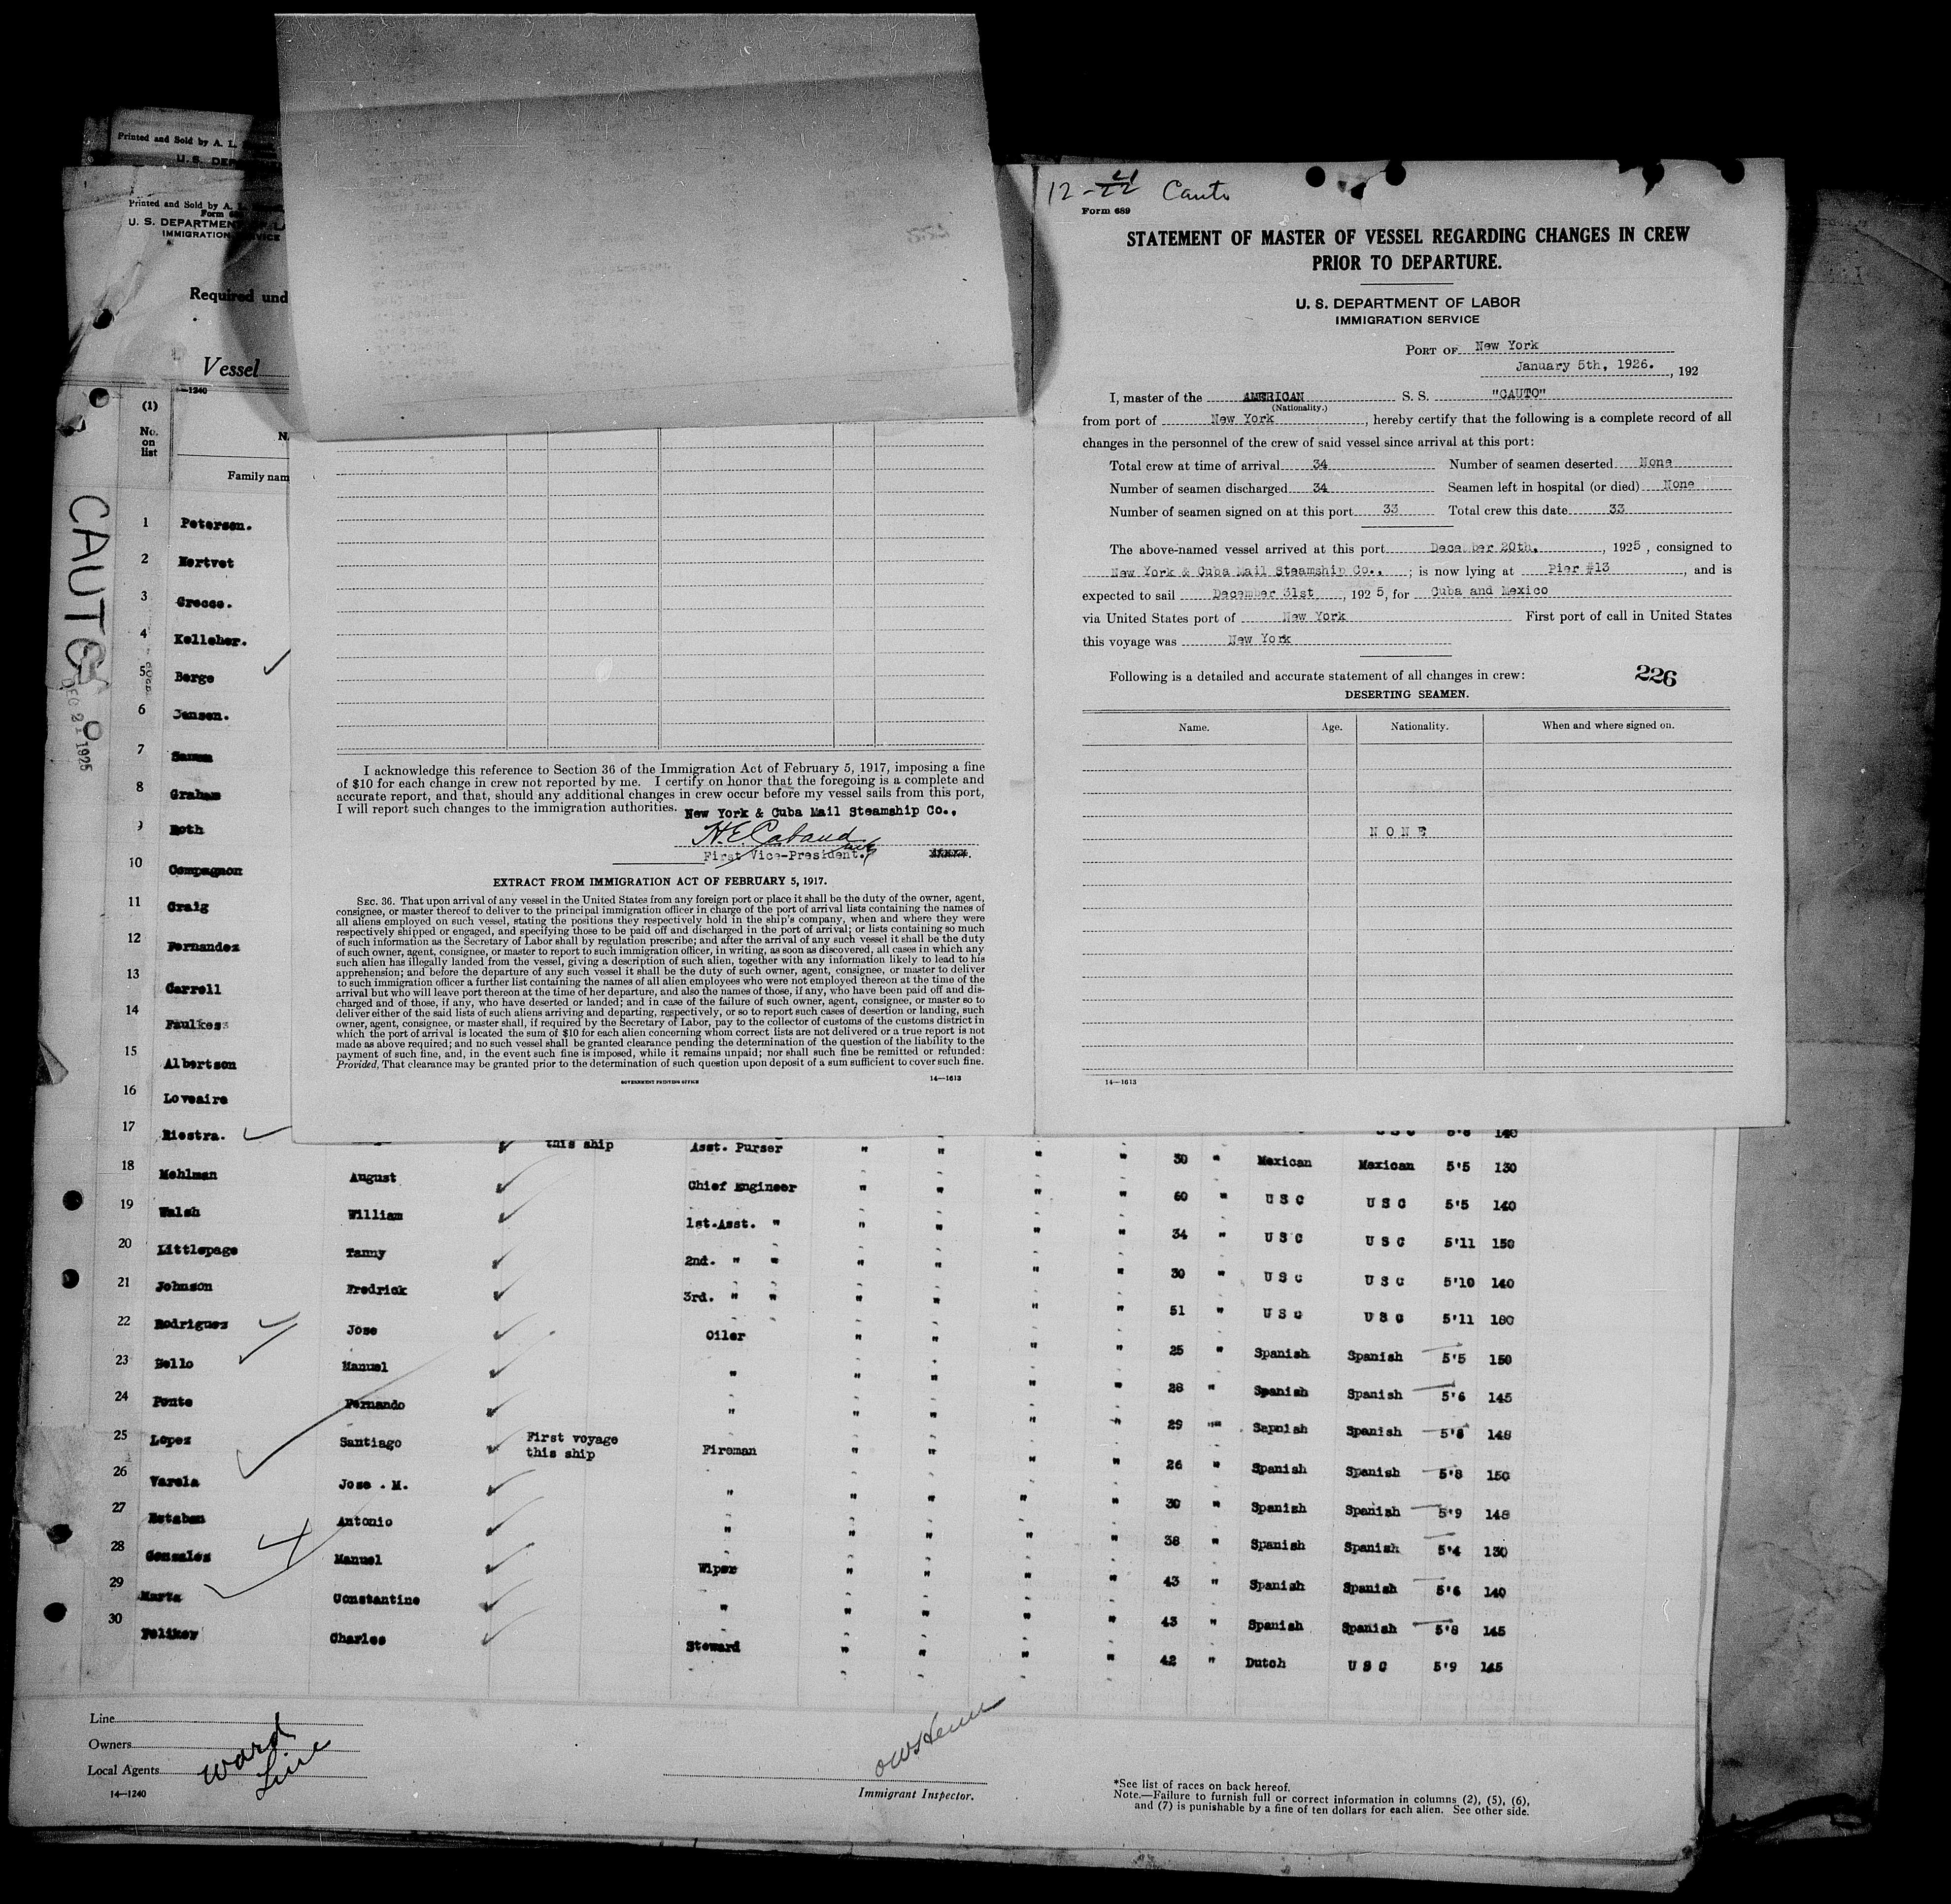 Printed and Sold by A. L.
U. S. DEP
Printed and Sold by A. L.
Form 6
U. S. DEPARTMENT
IMMIGRATION SERVICE
Required und
Vessel
14-1240
(1)
No.
on
list
Family nam
CAUTO
DEC 21 1925
1 Peterson.
2 Hertvet
3 Grecse.
4 Kelleher.
5 Berge
6 Jensen.
7
8 Graham
9 Roth
10 Compagnon
11 Craig
12 Fernandez
13 Carroll
14 Faulkes
15 Albertson
16 Loveaire
17 Riestra. this ship Asst. Purser " " " " 30 " Mexican Mexican 5'5 130
18 Mehlman August Chief Engineer " " " " 60 " U S C U S C 5'5 140
19 Walsh William 1st.Asst. " " " " " 34 " U S C U S C 5'11 150
20 Littlepage Tanny 2nd. " " " " " " 30 " U S C U S C 5'10 140
21 Johnson Fredrick 3rd. " " " " " " 51 " U S C U S C 5'11 180
22 Rodriguez Jose Oiler " " " " 25 " Spanish Spanish 5'5 150
23 Bello Manuel " " " " " 28 " Spanish Spanish 5'6 145
24 Ponte Fernando " " " " " 29 "" Sapnish Spanish 5'8 148
25 Lopez Santiago First voyage this ship Fireman " " " " 26 " Spanish Spanish 5'8 150
26 Varela Jose . M. " " " " " 30 " Spanish Spanish 5'9 148
27 Estaben Antonio " " " " " 38 " Spanish Spanish 5'4 130
28 Gonzales Manuel Wiper " " " " 43 " Spanish Spanish 5'6 140
29 Marta Constantine " " " " " 43 " Spanish Spanish 5'8 145
30 Felikey Charles Steward " " " " 42 " Dutch U S C 5'9 145
Line
Owners
Local Agents
Ward
Line
14-1240
Immigrant Inspector.
*See list of races on back hereof.
Note.—Failure to furnish full or correct information in columns (2), (5), (6),
and (7) is punishable by a fine of ten dollars for each alien. See other side.
I acknowledge this reference to Section 36 of the Immigration Act of February 5, 1917, imposing a fine
of $10 for each change in crew not reported by me. I certify on honor that the foregoing is a complete and
accurate report, and that, should any additional changes in crew occur before my vessel sails from this port,
I will report such changes to the immigration authorities.
New York & Cuba Mail Steamship Co.,
H.E. Cabaud
First Vice-President.
EXTRACT FROM IMMIGRATION ACT OF FEBRUARY 5, 1917.
SEC. 36. That upon arrival of any vessel in the United States from any foreign port or place it shall be the duty of the owner, agent,
consignee, or master thereof to deliver to the principal immigration officer in charge of the port of arrival lists containing the names of
all aliens employed on such vessel, stating the positions they respectively hold in the ship's company, when and where they were
respectively shipped or engaged, and specifying those to be paid off and discharged in the port of arrival; or lists containing so much
of such information as the Secretary of Labor shall by regulation prescribe; and after the arrival of any such vessel it shall be the duty
of such owner, agent, consignee, or master to report to such immigration officer, in writing, as soon as discovered, all cases in which any
such alien has illegally landed from the vessel, giving a description of such alien, together with any information likely to lead to his
apprehension; and before the departure of any such vessel it shall be the duty of such owner, agent, consignee, or master to deliver
to such immigration officer a further list containing the names of all alien employees who were not employed thereon at the time of the
arrival but who will leave port thereon at the time of her departure, and also the names of those, if any, who have been paid off and dis-
charged and of those, if any, who have deserted or landed; and in case of the failure of such owner, agent, consignee, or master so to
deliver either of the said lists of such aliens arriving and departing, respectively, or so to report such cases of desertion or landing, such
owner, agent, consignee, or master shall, if required by the Secretary of Labor, pay to the collector of customs of the customs district in
which the port of arrival is located the sum of $10 for each alien concerning whom correct lists are not delivered or a true report is not
made as above required; and no such vessel shall be granted clearance pending the determination of the question of the liability to the
payment of such fine, and, in the event such fine is imposed, while it remains unpaid; nor shall such fine be remitted or refunded:
Provided, That clearance may be granted prior to the determination of such question upon deposit of a sum sufficient to cover such fine.
GOVERNMENT PRINTING OFFICE
14—1613
12-22 21 Cauto
Form 689
STATEMENT OF MASTER OF VESSEL REGARDING CHANGES IN CREW
PRIOR TO DEPARTURE.
U. S. DEPARTMENT OF LABOR
IMMIGRATION SERVICE
PORT OF New York
January 5th, 1926. , 192
I, master of the AMERICAN S. S. "CAUTO"
(Nationality.)
from port of New York , hereby certify that the following is a complete record of all
changes in the personnel of the crew of said vessel since arrival at this port:
Total crew at time of arrival 34 Number of seamen deserted None
Number of seamen discharged 34 Seamen left in hospital (or died) None
Number of seamen signed on at this port 33 Total crew this date 33
The above-named vessel arrived at this port December 20th, , 1925 , consigned to
New York & Cuba Mail Steamship Co., ; is now lying at Pier #13 , and is
expected to sail December 31st , 192 5, for Cuba and Mexico
via United States port of New York First port of call in United States
this voyage was New York
Following is a detailed and accurate statement of all changes in crew:
226
DESERTING SEAMEN.
Name. Age. Nationality. When and where signed on.
N O N E
14—1613